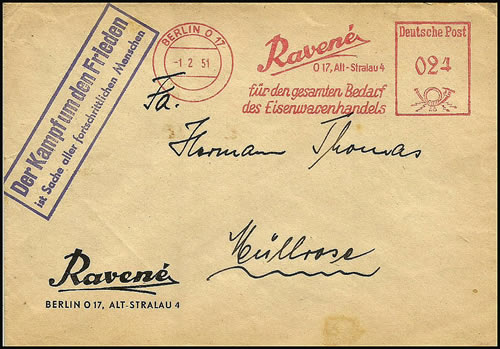 Der Kampf um den Frieden
ist Sache aller fortschrittlichen Menschen
BERLIN O 17
-1 2 51
Ravené
O 17, Alt-Stralau 4
für den gesamten Bedarf
des Eisenwarenhandels
Deutsche Post
024
Fa.
Hermann Thomas
Müllrose
Ravené
BERLIN O 17, ALT-STRALAU 4